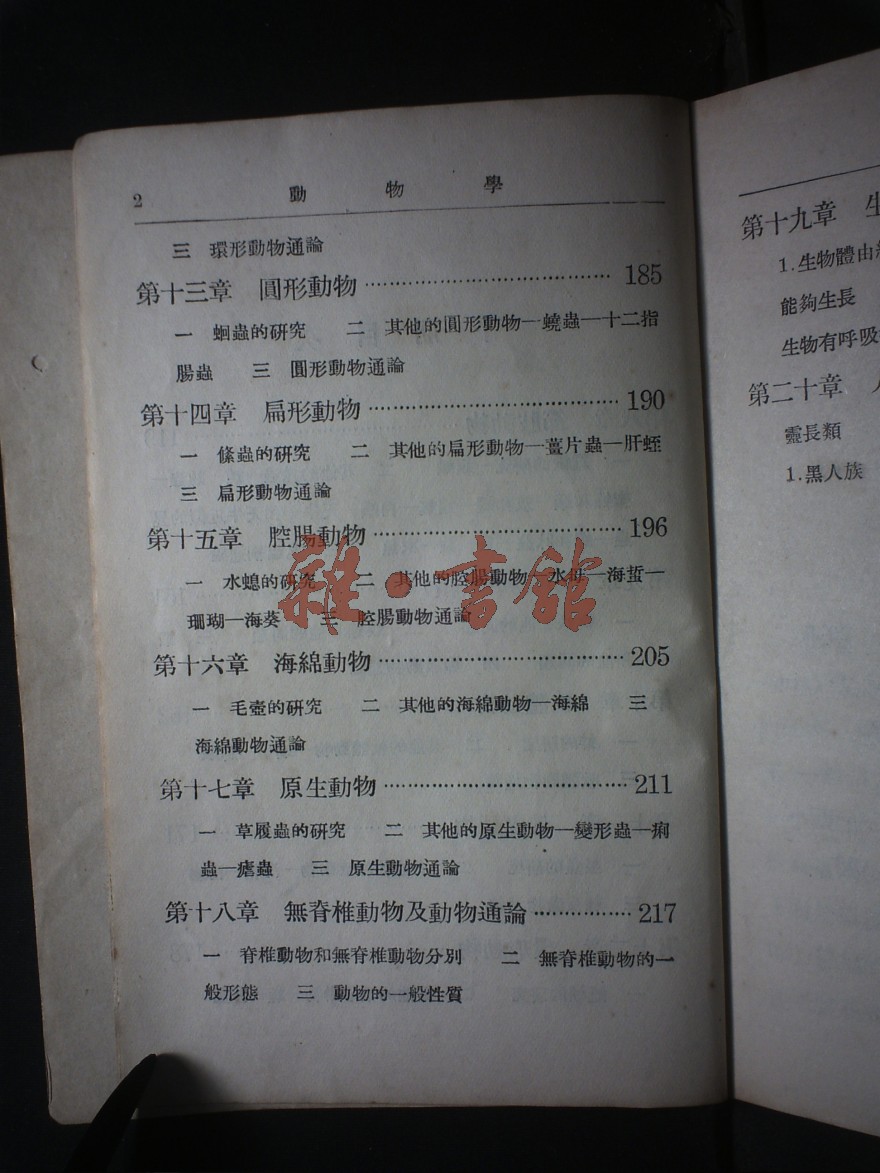 2 動物學
三 環形動物通論
第十三章 圓形動物 ………………………… 185
一 蛔蟲的研究 二 其他的圓形動物—蟯蟲—十二指
腸蟲 三 圓形動物通論
第十四章 扁形動物 ………………………… 190
一 絛蟲的研究 二 其他的扁形動物—薑片蟲—肝蛭
三 扁形動物通論
第十五章 腔腸動物 ………………………… 196
一 水螅的研究 二 其他的腔腸動物—水母—海蜇—
珊瑚—海葵 三 腔腸動物通論
第十六章 海綿動物 ………………………… 205
一 毛壺的研究 二 其他的海綿動物—海綿 三
海綿動物通論
第十七章 原生動物 ………………………… 211
一 草履蟲的研究 二 其他的原生動物—變形蟲—痢
蟲—瘧蟲 三 原生動物通論
第十八章 無脊椎動物及動物通論 ……………… 217
一 脊椎動物和無脊椎動物分別 二 無脊椎動物的一
般形態 三 動物的一般性質
雜·書館
第十九章 生
1.生物體由
能夠生長
生物有呼吸
第二十章
靈長類
1.黑人族